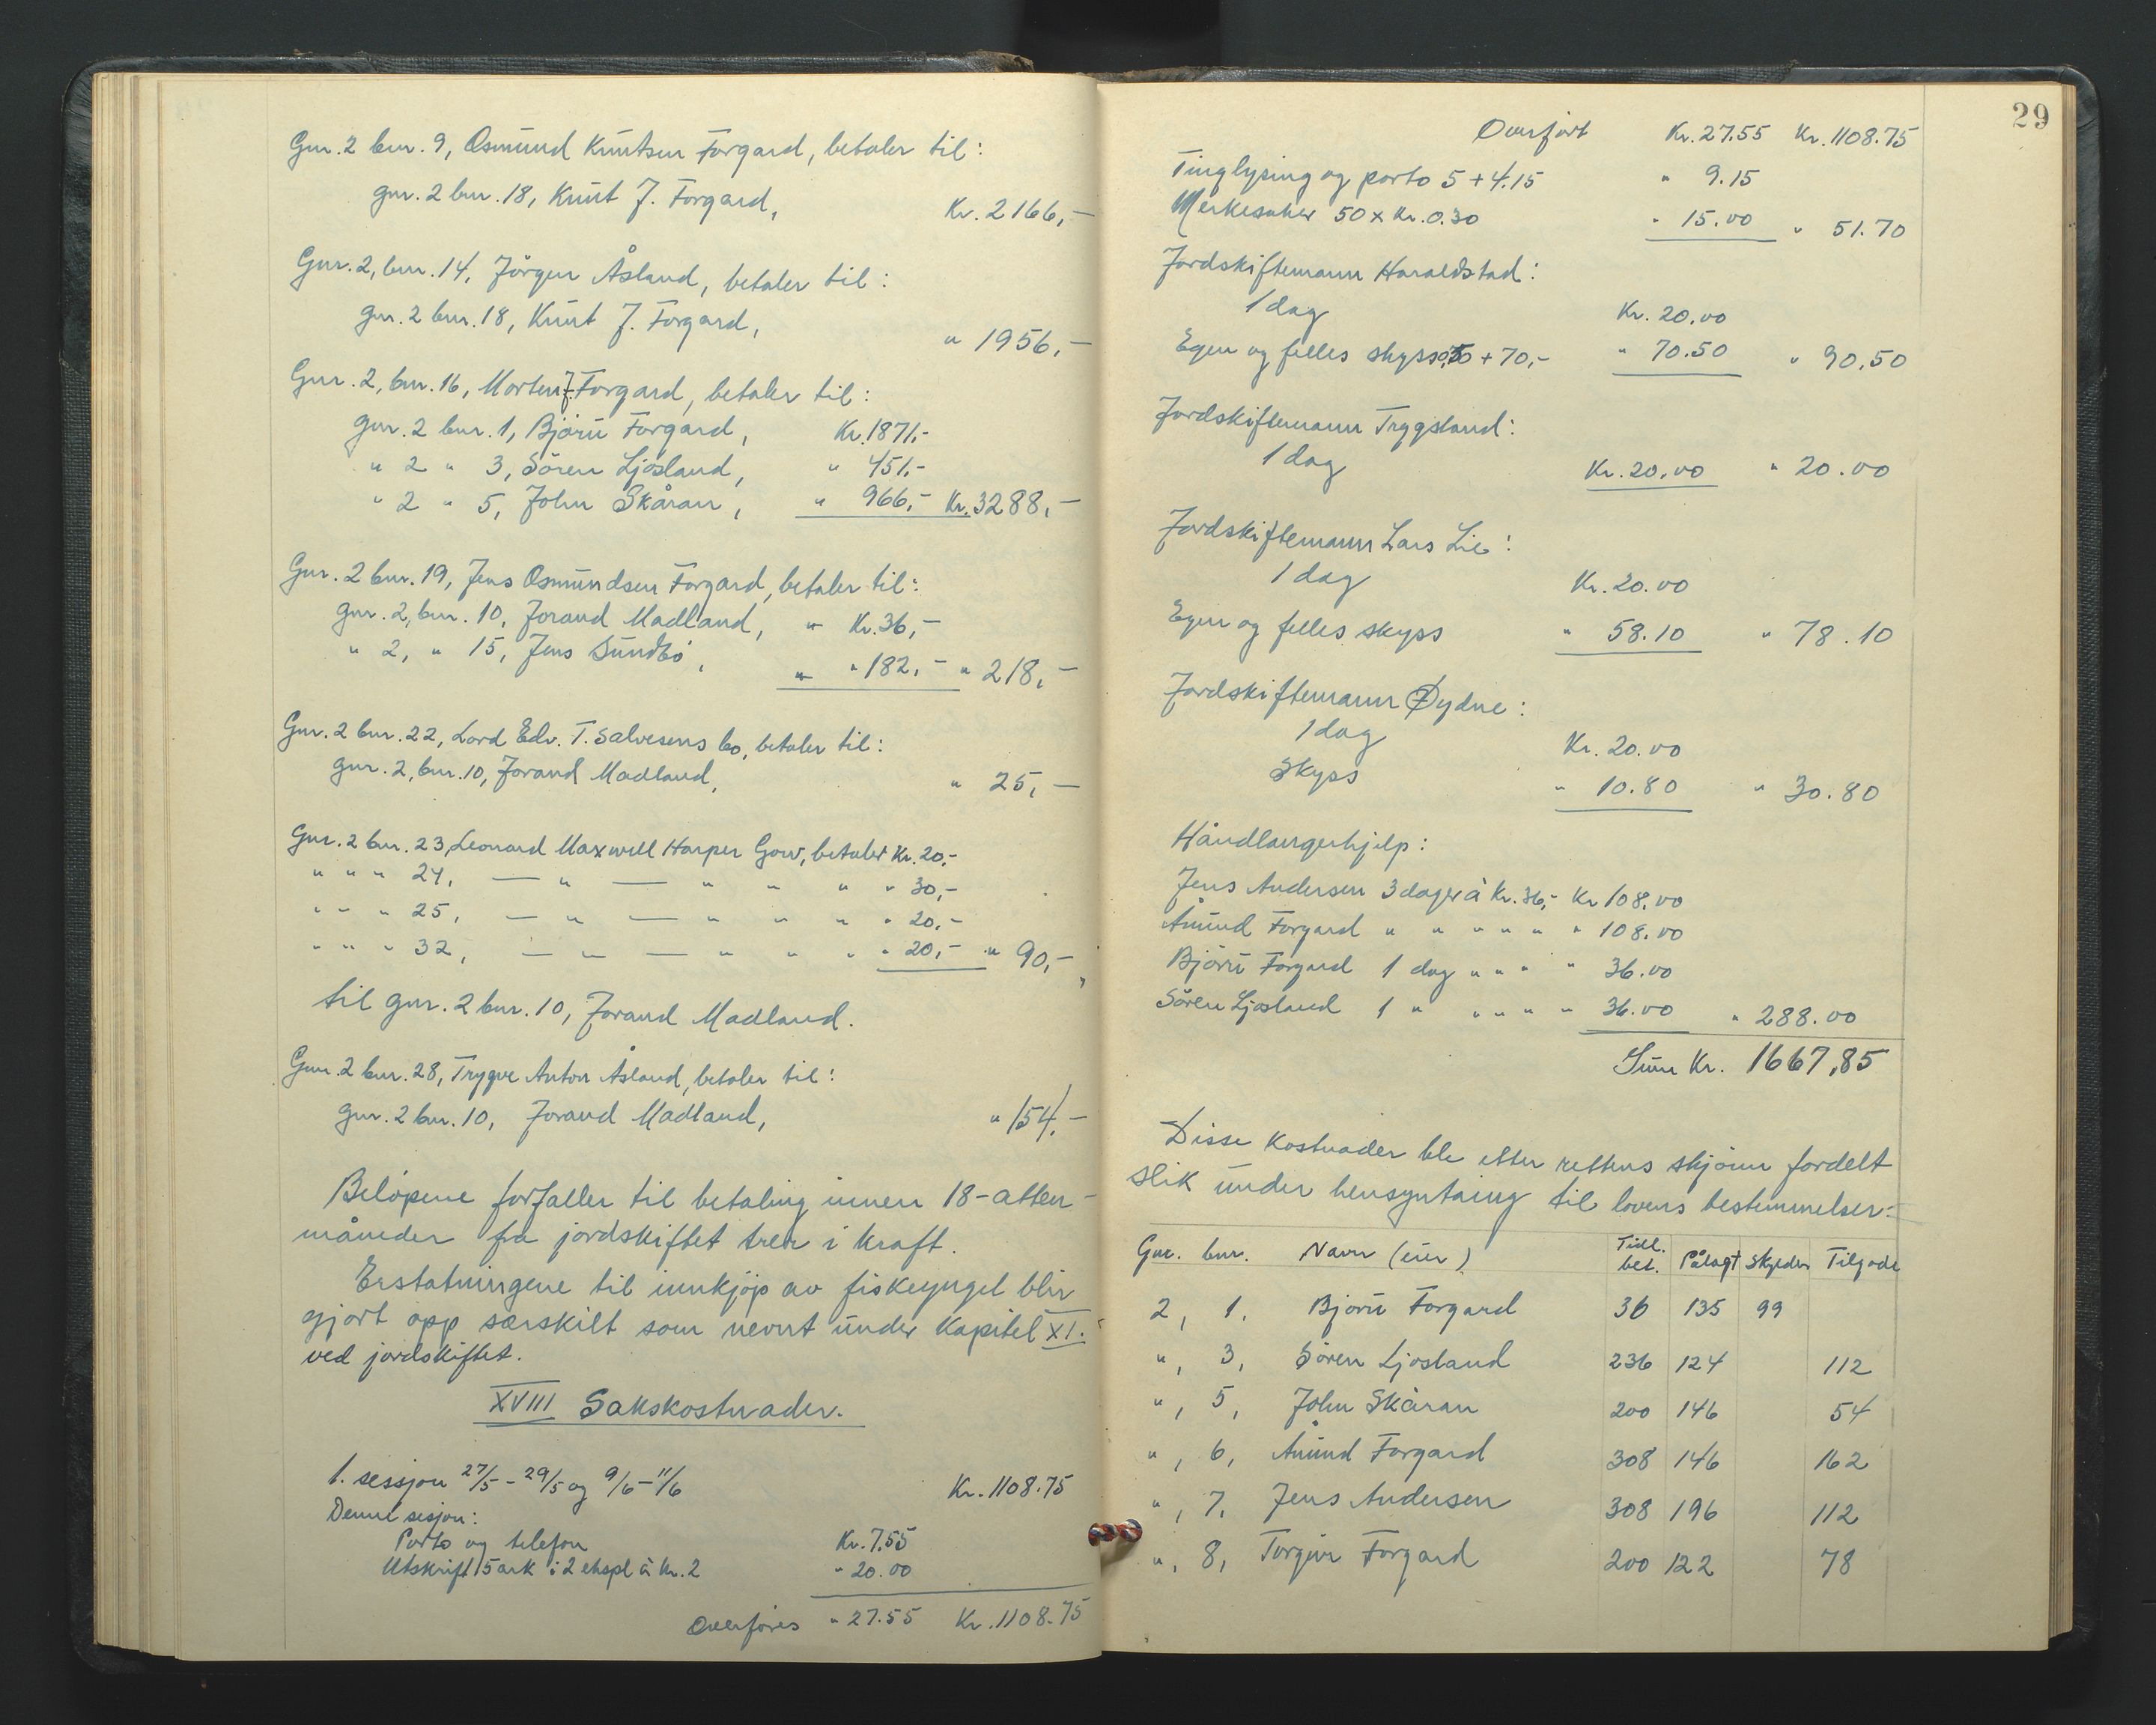 Gnr. 2 bnr. 9, Osmund Knutsen Forgard, betaler til:
gnr. 2 bnr. 18, Knut J. Forgard, Kr. 2166,-
Gnr. 2, bnr. 14, Jörgen Åsland, betaler til:
gnr. 2 bnr. 18, Knut J. Forgard, " 1956,-
Gnr. 2, bnr. 16, Morten J. Forgard, betaler til:
gnr. 2 bnr. 1, Björn Forgard, Kr. 1871,-
" 2 " 3, Sören Ljosland, " 451,-
" 2 " 5, John Skåran, " 966,- Kr. 3288,-
Gnr. 2 bnr. 19, Jens Osmundsen Forgard, betaler til:
gnr. 2, bnr. 10, Jorand Madland, " Kr. 36,-
" 2, " 15, Jens Sundbö, " " 182,- " 218,-
Gnr. 2 bnr. 22, Lord Edv. T. Salvesens bo, betaler til:
gnr. 2, bnr. 10, Jorand Madland, " 25,-
Gnr. 2 bnr. 23, Leonard Maxwell Harper Gow, betaler Kr. 20,-
" " " 24, — " — " " " " 30,-
" " " 25, — " — " " " " 20,-
" " " 32, — " — " " " " 20,- " 90,-
til gnr. 2 bnr. 10, Jorand Madland.
Gnr. 2 bnr. 28, Trygve Anton Åsland, betaler til:
gnr. 2 bnr. 10, Jorand Madland, " 154,-
Belöpene forfaller til betaling innen 18-atten-
måneder fra jordskiftet trer i kraft.
Erstatningene til innkjöp av fiskeyngel blir
gjort opp særskilt som nevnt under Kapitel XI.
ved jordskiftet.
XVIII Sakskostnader.
1. sessjon 27/5 - 29/5 og 9/6 - 11/6 Kr. 1108.75
Denne sesjon:
Porto og telefon Kr. 7.55
Utskrift 5 ark i 2 ekspl à kr. 2 " 20.00
Overföres " 27.55 Kr. 1108.75
29
Overfört Kr. 27.55 Kr. 1108.75
Tinglysing og porto 5 + 4.15 " 9.15
Merkesaker 50 x Kr. 0.30 " 15.00 " 51.70
Jordskiftemann Haraldstad:
1 dag Kr. 20.00
Egen og felles skyss 0,50 + 70,- " 70.50 " 90.50
Jordskiftemann Trygsland:
1 dag Kr. 20.00 " 20.00
Jordskiftemann Lars Lie:
1 dag Kr. 20.00
Egen og felles skyss " 58.10 " 78.10
Jordskiftemann Öydne:
1 dag Kr. 20.00
Skyss " 10.80 " 30.80
Håndlangerhjelp:
Jens Andersen 3 dager à Kr. 36,- Kr 108.00
Ånund Forgard " " " " " " 108.00
Björn Forgard 1 dag " " " " 36.00
Sören Ljosland 1 " " " " " 36.00 " 288.00
Sum Kr. 1667,85
Disse kostnader ble etter rettens skjönn fordelt
slik under hensyntaing til lovens bestemmelser:
Gnr. bnr. Navn (eier) Tidl. bet. Pålagt Skylder Tilgode
2, 1. Björn Forgard 36 135 99
", 3, Sören Ljosland 236 124 112
", 5, John Skåran 200 146 54
", 6, Ånund Forgard 308 146 162
", 7, Jens Andersen 308 196 112
", 8, Torgeir Forgard 200 122 78